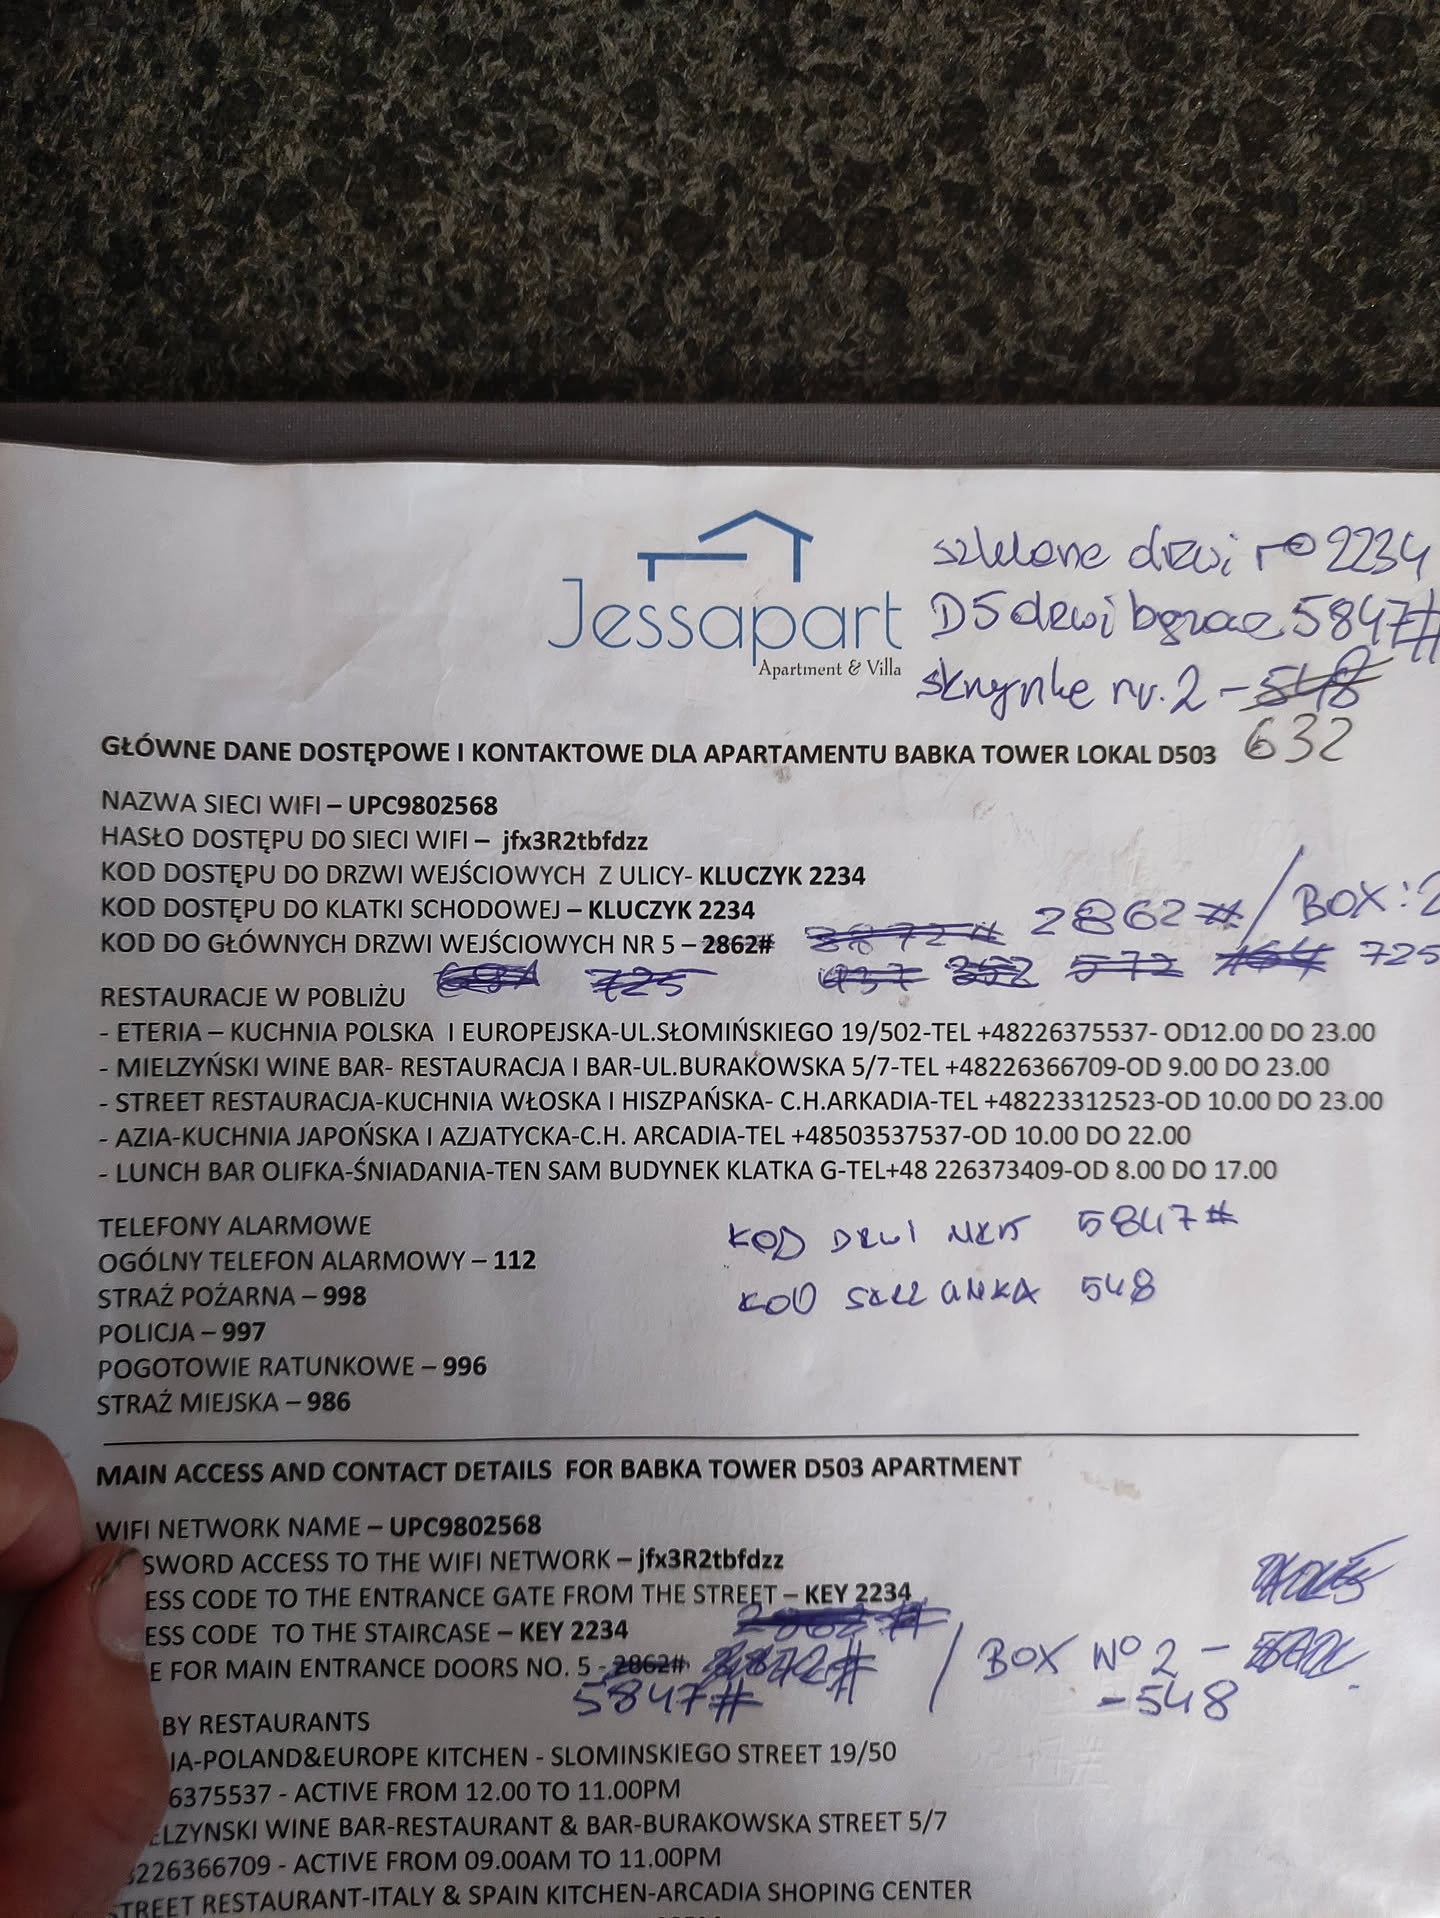 drzwi 2234
Jessapart
D5 drzwi 5847#
Apartment & Villa
nr. 2 - 548
GŁÓWNE DANE DOSTĘPOWE I KONTAKTOWE DLA APARTAMENTU BABKA TOWER LOKAL D503 632
NAZWA SIECI WIFI – UPC9802568
HASŁO DOSTĘPU DO SIECI WIFI – jfx3R2tbfdzz
KOD DOSTĘPU DO DRZWI WEJŚCIOWYCH Z ULICY- KLUCZYK 2234
KOD DOSTĘPU DO KLATKI SCHODOWEJ – KLUCZYK 2234
KOD DO GŁÓWNYCH DRZWI WEJŚCIOWYCH NR 5 – 2862# 2872# 2862# / BOX: 2
725 437 572 164 725
RESTAURACJE W POBLIŻU
- ETERIA – KUCHNIA POLSKA I EUROPEJSKA-UL.SŁOMIŃSKIEGO 19/502-TEL +48226375537- OD12.00 DO 23.00
- MIELZYŃSKI WINE BAR- RESTAURACJA I BAR-UL.BURAKOWSKA 5/7-TEL +48226366709-OD 9.00 DO 23.00
- STREET RESTAURACJA-KUCHNIA WŁOSKA I HISZPAŃSKA- C.H.ARKADIA-TEL +48223312523-OD 10.00 DO 23.00
- AZIA-KUCHNIA JAPOŃSKA I AZJATYCKA-C.H. ARCADIA-TEL +48503537537-OD 10.00 DO 22.00
- LUNCH BAR OLIFKA-ŚNIADANIA-TEN SAM BUDYNEK KLATKA G-TEL+48 226373409-OD 8.00 DO 17.00
TELEFONY ALARMOWE
OGÓLNY TELEFON ALARMOWY – 112
STRAŻ POŻARNA – 998
POLICJA – 997
POGOTOWIE RATUNKOWE – 996
STRAŻ MIEJSKA – 986
KOD 5847#
KOD 548
MAIN ACCESS AND CONTACT DETAILS FOR BABKA TOWER D503 APARTMENT
WIFI NETWORK NAME – UPC9802568
SWORD ACCESS TO THE WIFI NETWORK – jfx3R2tbfdzz
ESS CODE TO THE ENTRANCE GATE FROM THE STREET – KEY 2234
ESS CODE TO THE STAIRCASE – KEY 2234
E FOR MAIN ENTRANCE DOORS NO. 5 - 2862# 2872# / BOX No 2 -
5847# - 548
BY RESTAURANTS
IA-POLAND&EUROPE KITCHEN - SLOMINSKIEGO STREET 19/50
6375537 - ACTIVE FROM 12.00 TO 11.00PM
ELZYNSKI WINE BAR-RESTAURANT & BAR-BURAKOWSKA STREET 5/7
8226366709 - ACTIVE FROM 09.00AM TO 11.00PM
STREET RESTAURANT-ITALY & SPAIN KITCHEN-ARCADIA SHOPING CENTER